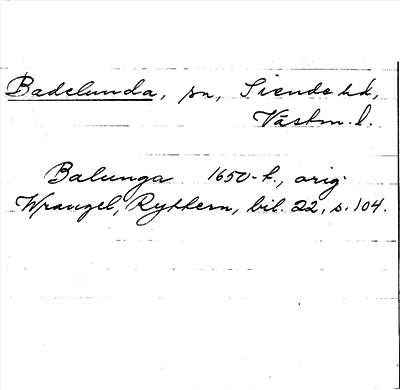 Badelunda, sn, Siende hd,
Västm. l.
Balunga 1650-t., orig.
Wrangel, Rytkern, bil. 22, s. 104.